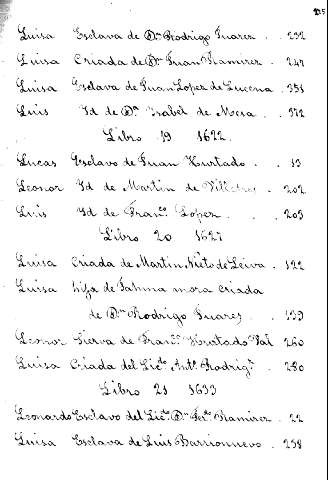 Luisa Esclava de Dn Rodrigo Juarez . 232
Luisa Criada de Dn Juan Ramirez . 247
Luisa Esclava de Juan Lopez de Lucena . 351
Luis Id de Da Isabel de Mesa . 372
Libro 19 1622.
Lucas Esclavo de Juan Hurtado . . 13
Leonor Id de Martin de . 202
Luis Id de Franco Lopez . . . 203
Libro 20 1627
Luisa Criada de Martin Nieto de Leiva . 122
Luisa hija de mora criada
de Dn Rodrigo Juares . 139
Leonor Sierva de Franco Hurtado 260
Luisa Criada del Licdo Anto Rodrigz 280
Libro 21 1633
Leonardo Esclavo del Licdo Dn Ramirez . 22
Luisa Esclava de Luis Barrionuevo . 238